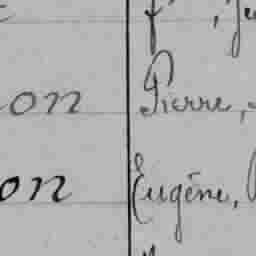 on Pierre,
on Eugène,